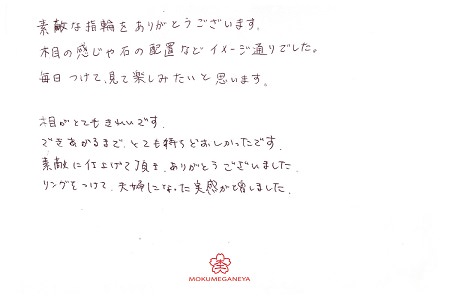 素敵な指輪をありがとうございます。
木目の感じや石の配置などイメージ通りでした。
毎日つけて、見て楽しみたいと思います。
木目がとてもきれいです。
できあがるまで、とても待ちどおしかったです。
素敵に仕上げて頂き、ありがとうございました。
リングをつけて、夫婦になった実感が増しました。
MOKUMEGANEYA